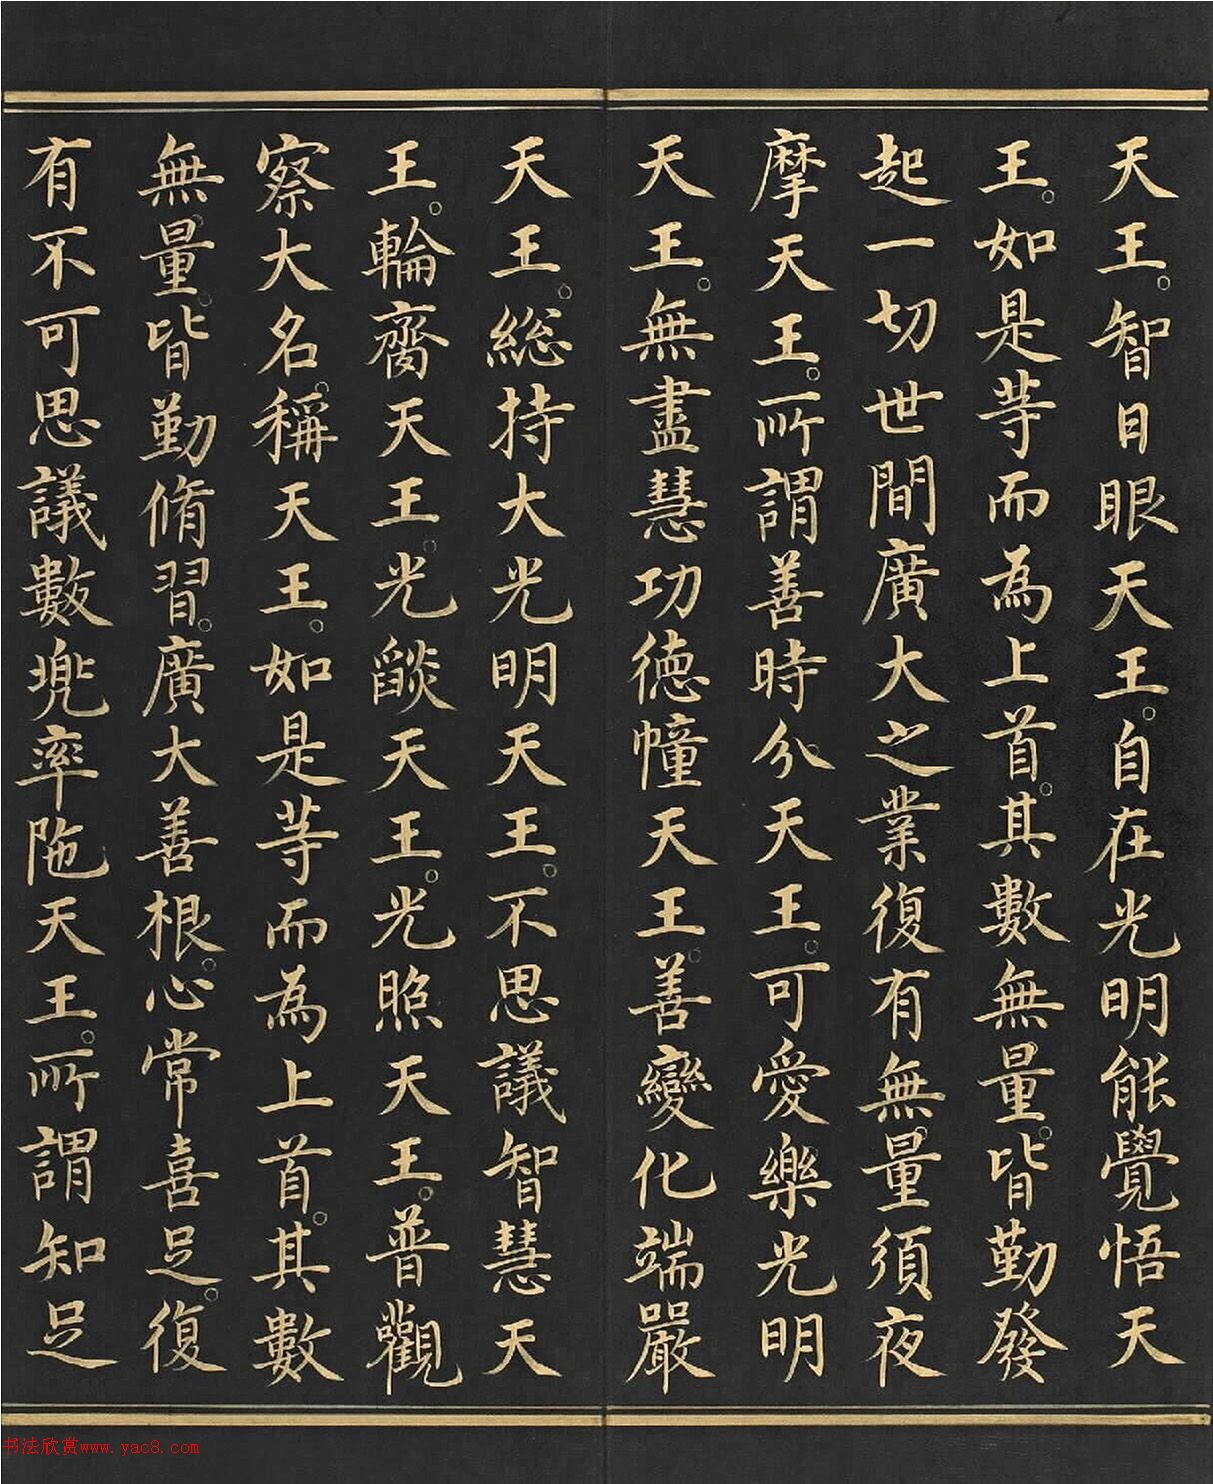 天王。智日眼天王。自在光明能覺悟天
王。如是等而為上首。其數無量。皆勤發
起一切世間廣大之業復有無量須夜
摩天王。所謂善時分天王。可愛樂光明
天王。無盡慧功德幢天王。善變化端嚴
天王。総持大光明天王。不思議智慧天
王。輪齎天王。光燄天王。光照天王。普觀
察大名。稱天王。如是等而為上首。其數
無量。皆勤脩習。廣大善根。心常喜足。復
有不可思議數兠率陁天王。所謂知足
书法欣赏www.yac8.com